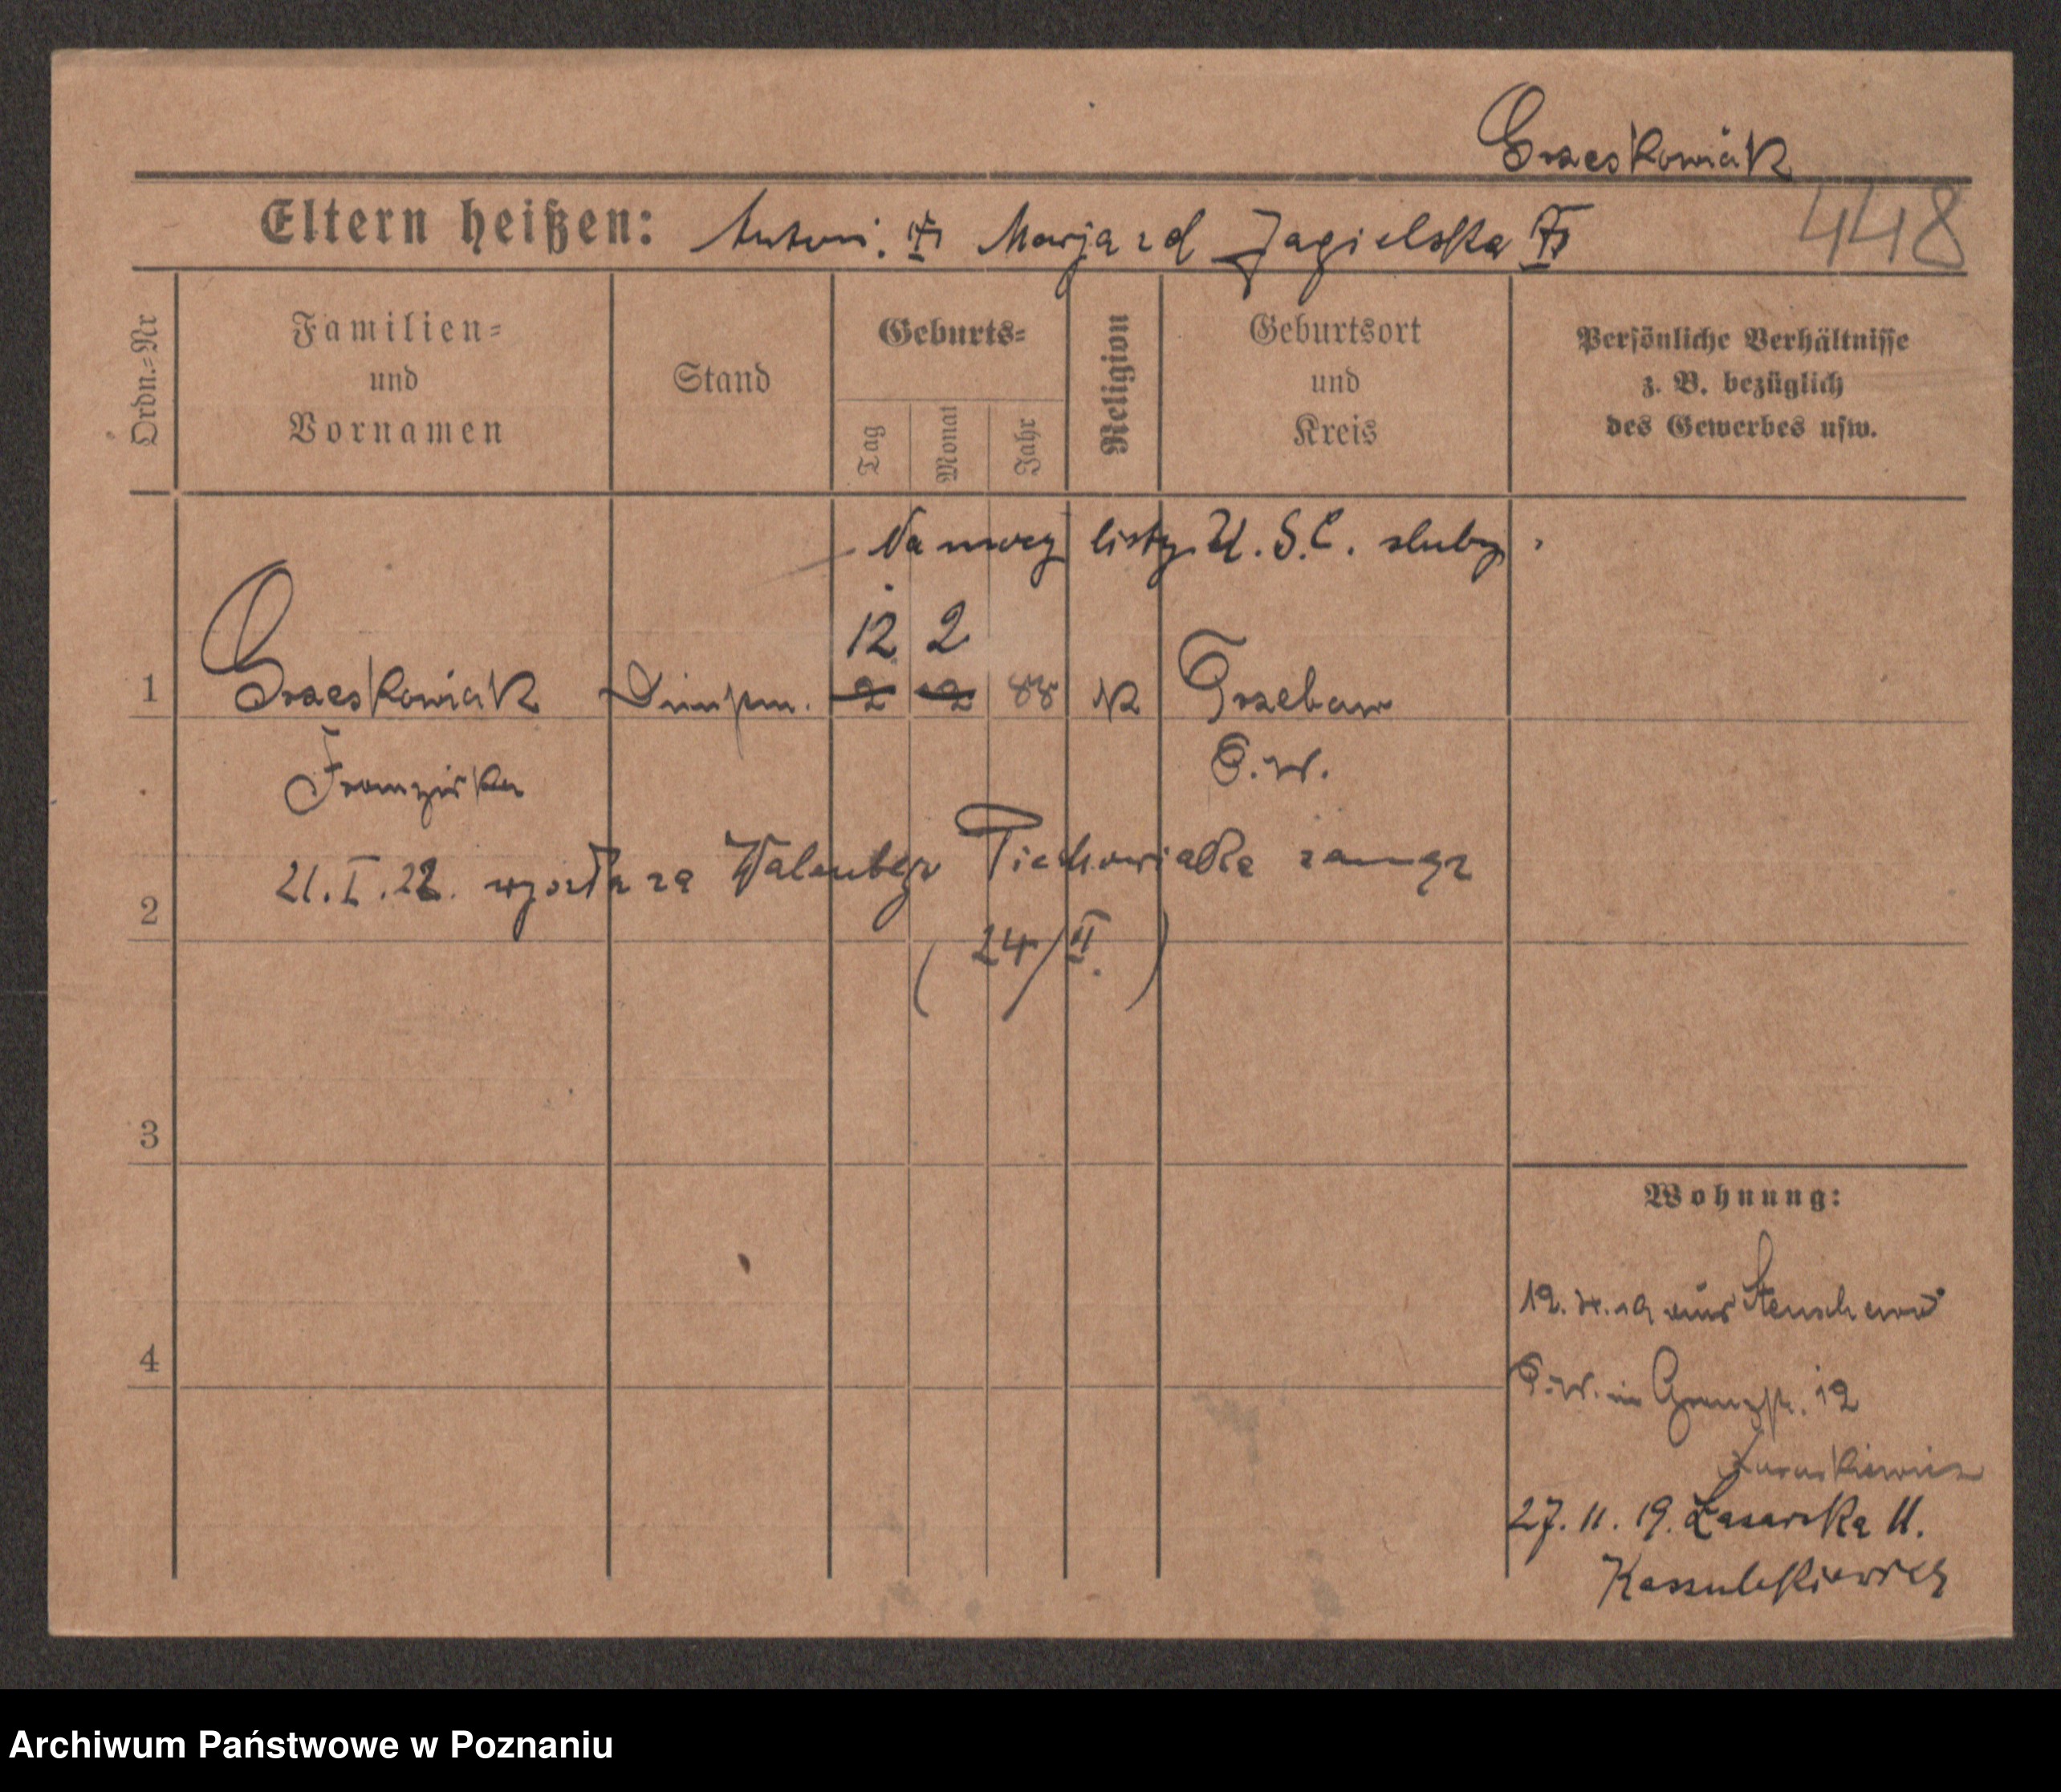 Grzeskowiak
Eltern heißen: Antoni. Marja z d Jagielska
448
Ordn.=Nr
Familien=
und
Vornamen
Stand
Geburts=
Tag
Monat
Jahr
Religion
Geburtsort
und
Kreis
Persönliche Verhältnisse
z. B. bezüglich
des Gewerbes usw.
Na mocy listy U.S.C. sluby.
12 2
1 Grzeskowiak 2 2 88 K Trzebaw
Franziska P.W.
21.I.22. wyszła za Walentego Piechowiaka zamąz
2
(24/II.)
3
Wohnung:
aus Stenschewo
4
P.W. in Grenzstr. 12
27.11.19. Lazarska 11.
Archiwum Państwowe w Poznaniu